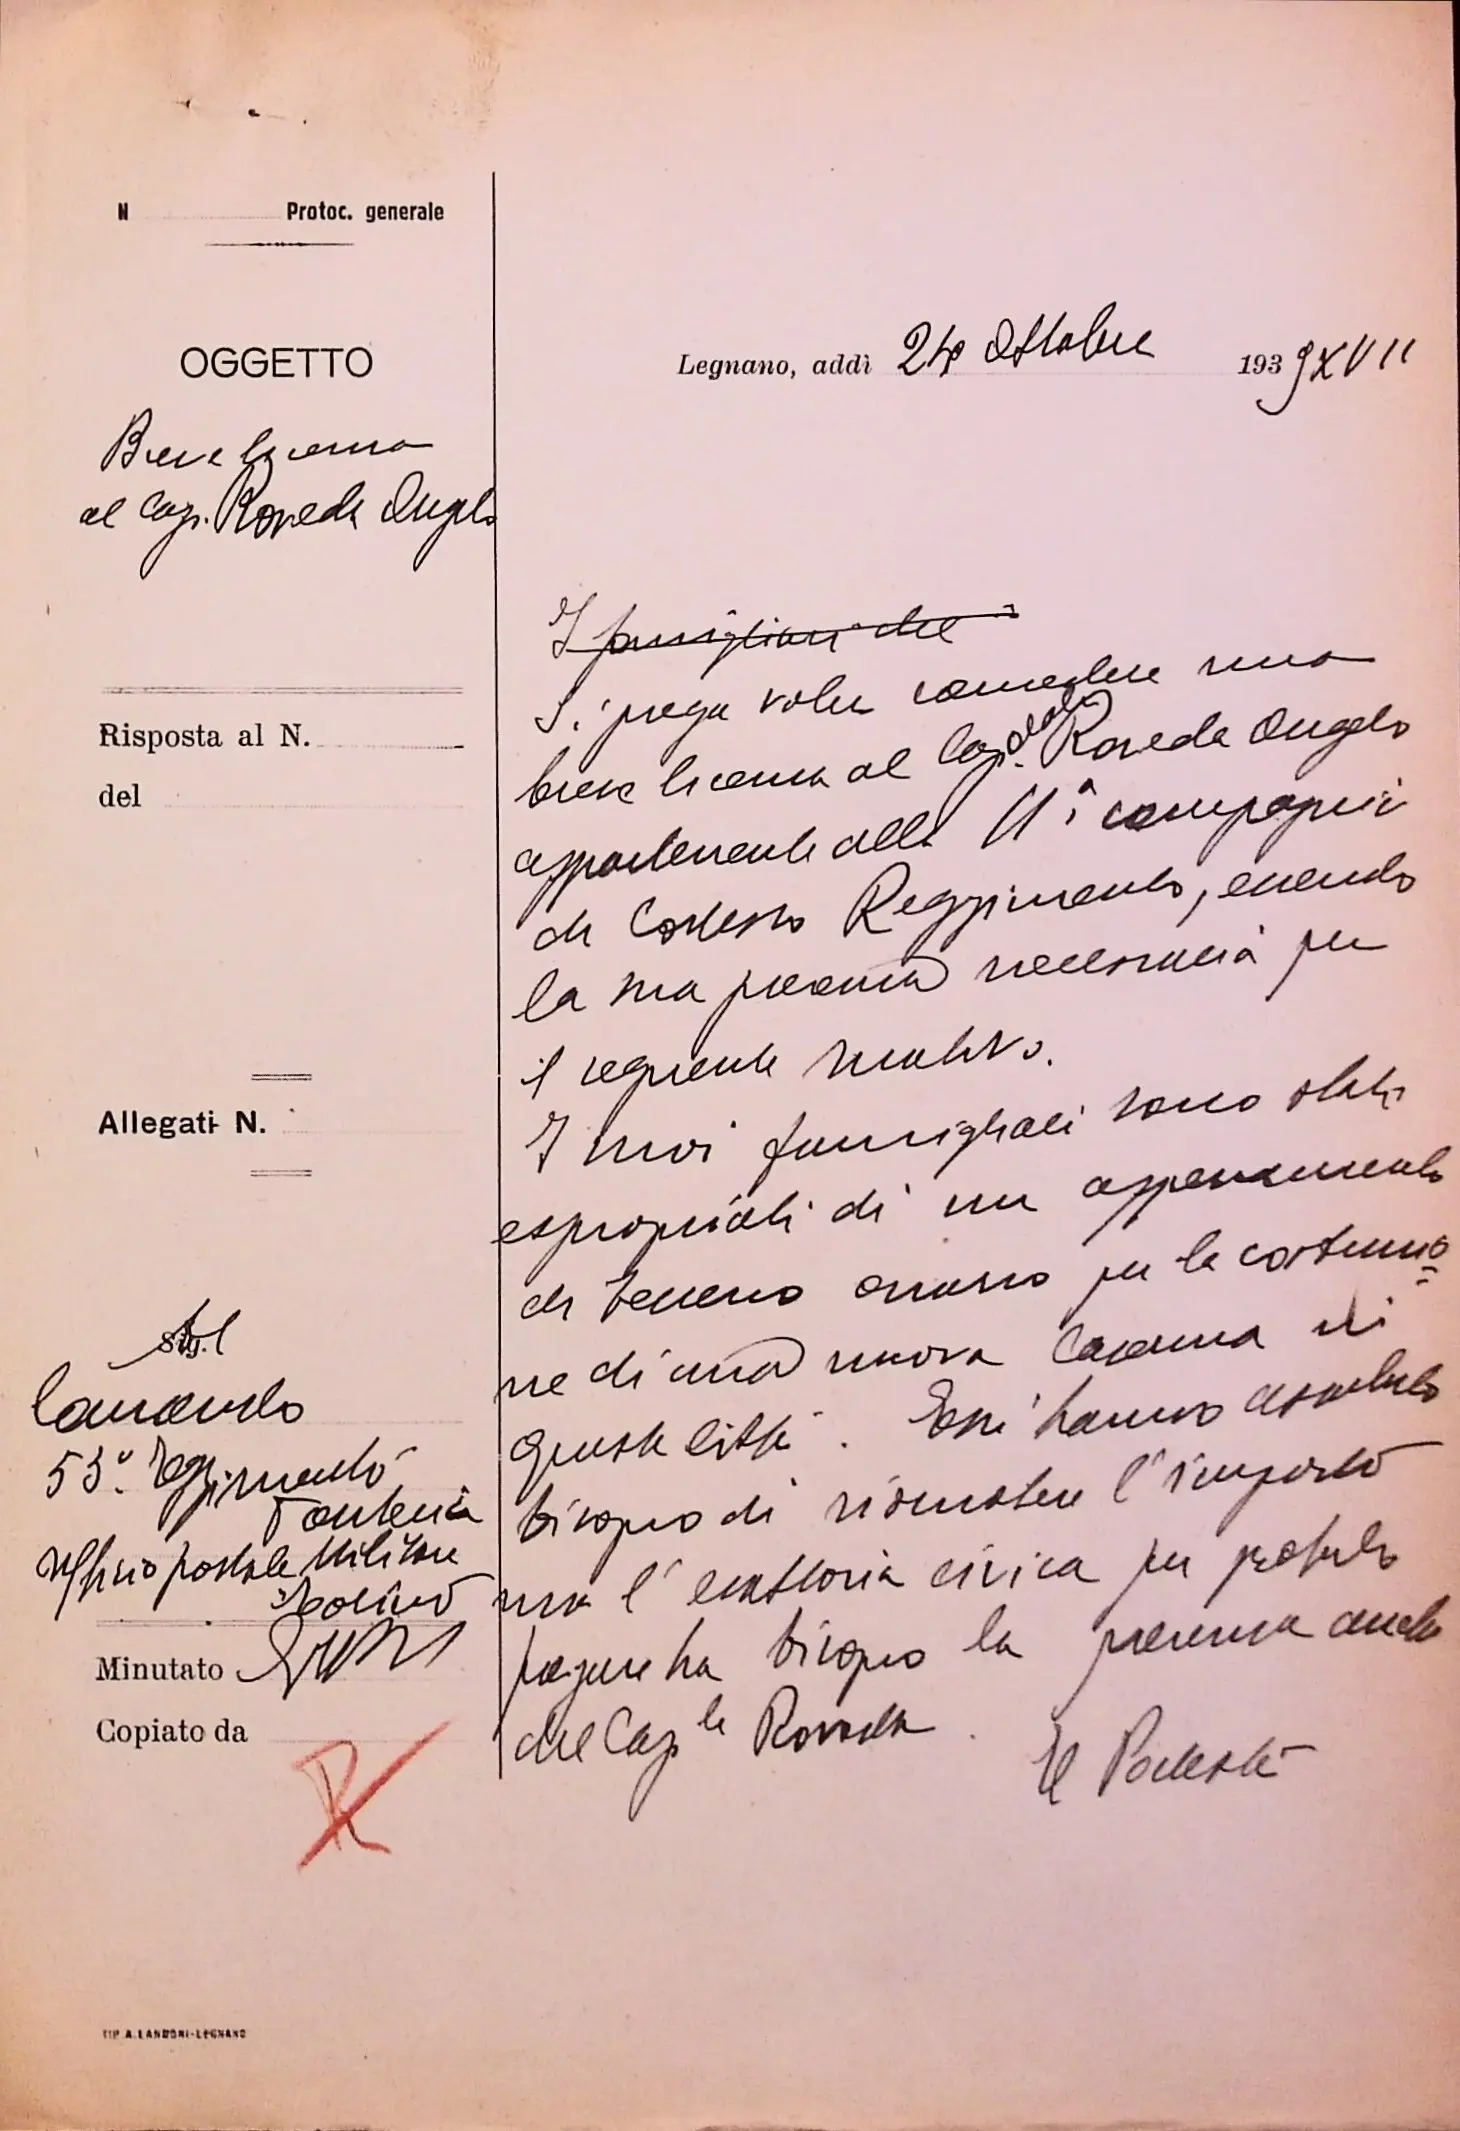 N Protoc. generale
OGGETTO
Legnano, addì 24 Ottobre 1939 XVII
Breve licenza
al Cap. Roveda Angelo
I famigliari del
Si prega voler concedere una
breve licenza al Cap.orale Roveda Angelo
appartenente alla 11ª compagnia
di Codesto Reggimento, essendo
la sua presenza necessaria per
il seguente motivo.
I suoi famigliari sono stati
espropriati di un appezzamento
di terreno occorso per la costruzio=
ne di una nuova Caserma in
questa città. Essi hanno assoluto
bisogno di riscuotere l'importo
ma l'esattoria civica per poterlo
pagare ha bisogno la presenza anche
del Cap.le Roveda.
Il Podestà
Risposta al N.
del
Allegati N.
Al
Sig.
Comando
53° Reggimento
Fanteria
Ufficio postale Militare
Minutato
Copiato da
TIP. A. LANDONI-LEGNANO